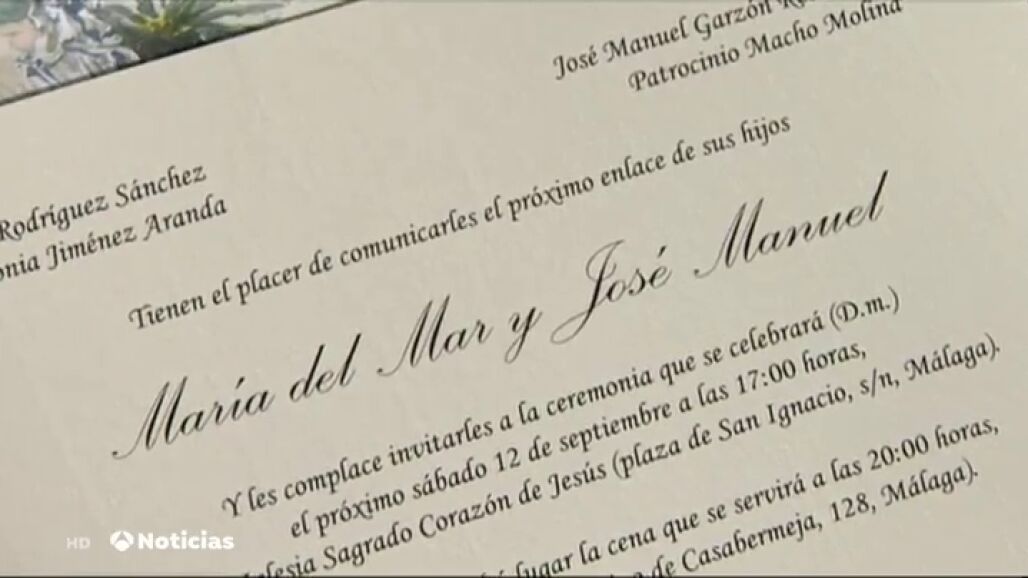 José Manuel Garzón
Patrocinio Macho Molina
Rodríguez Sánchez
Jiménez Aranda
Tienen el placer de comunicarles el próximo enlace de sus hijos
María del Mar y José Manuel
Y les complace invitarles a la ceremonia que se celebrará (D.m.)
el próximo sábado 12 de septiembre a las 17:00 horas,
Sagrado Corazón de Jesús (plaza de San Ignacio, s/n, Málaga).
lugar la cena que se servirá a las 20:00 horas,
de Casabermeja, 128, Málaga).
HD Noticias